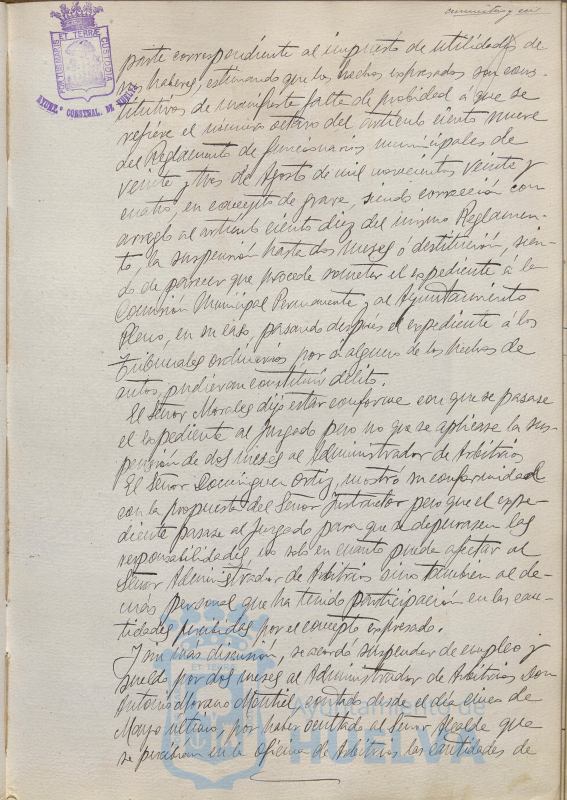 PORTUS MARIS ET TERRÆ CUSTODIA
AYUNTº CONSTNAL. DE HUELVA
cincuenta y un
parte correspondiente al impuesto de utilidades de
sus haberes, estimando que los hechos expresados son cons-
titutivos de manifiesta falta de probidad á que se
refiere el número octavo del artículo ciento nueve
del Reglamento de funcionarios municipales de
veinte y tres de Agosto de mil novecientos veinte y
cuatro, en concepto de grave, siendo corrección con
arreglo al artículo ciento diez del mismo Reglamen-
to, la suspensión hasta dos meses o destitución, sien-
do de parecer que procede someter el expediente á la
Comisión Municipal Permanente y al Ayuntamiento
Pleno, en su caso, pasando después el expediente á los
Tribunales ordinarios por si alguno de los hechos de
autos, pudieran constituir delito.
El Señor Morales dijo estar conforme con que se pasase
el expediente al Juzgado pero no que se aplicase la sus-
pensión de dos meses al Administrador de Arbitrios
El Señor Dominguez Ortiz, mostró su conformidad
con la propuesta del Señor Instructor pero que el expe-
diente pasase al Juzgado para que se depurasen las
responsabilidades no solo en cuanto pueda afectar al
Señor Administrador de Arbitrios sino también al de-
más personal que ha tenido participación en las can-
tidades percibidas por el concepto expresado.
Y sin más discusión, se acordó suspender de empleo y
sueldo por dos meses al Administrador de Arbitrios Don
Antonio Morano Montiel, contados desde el día cinco de
Marzo último, por haber ocultado al Señor Alcalde que
se percibían en la oficina de Arbitrios las cantidades de
Ayuntamiento de
HUELVA